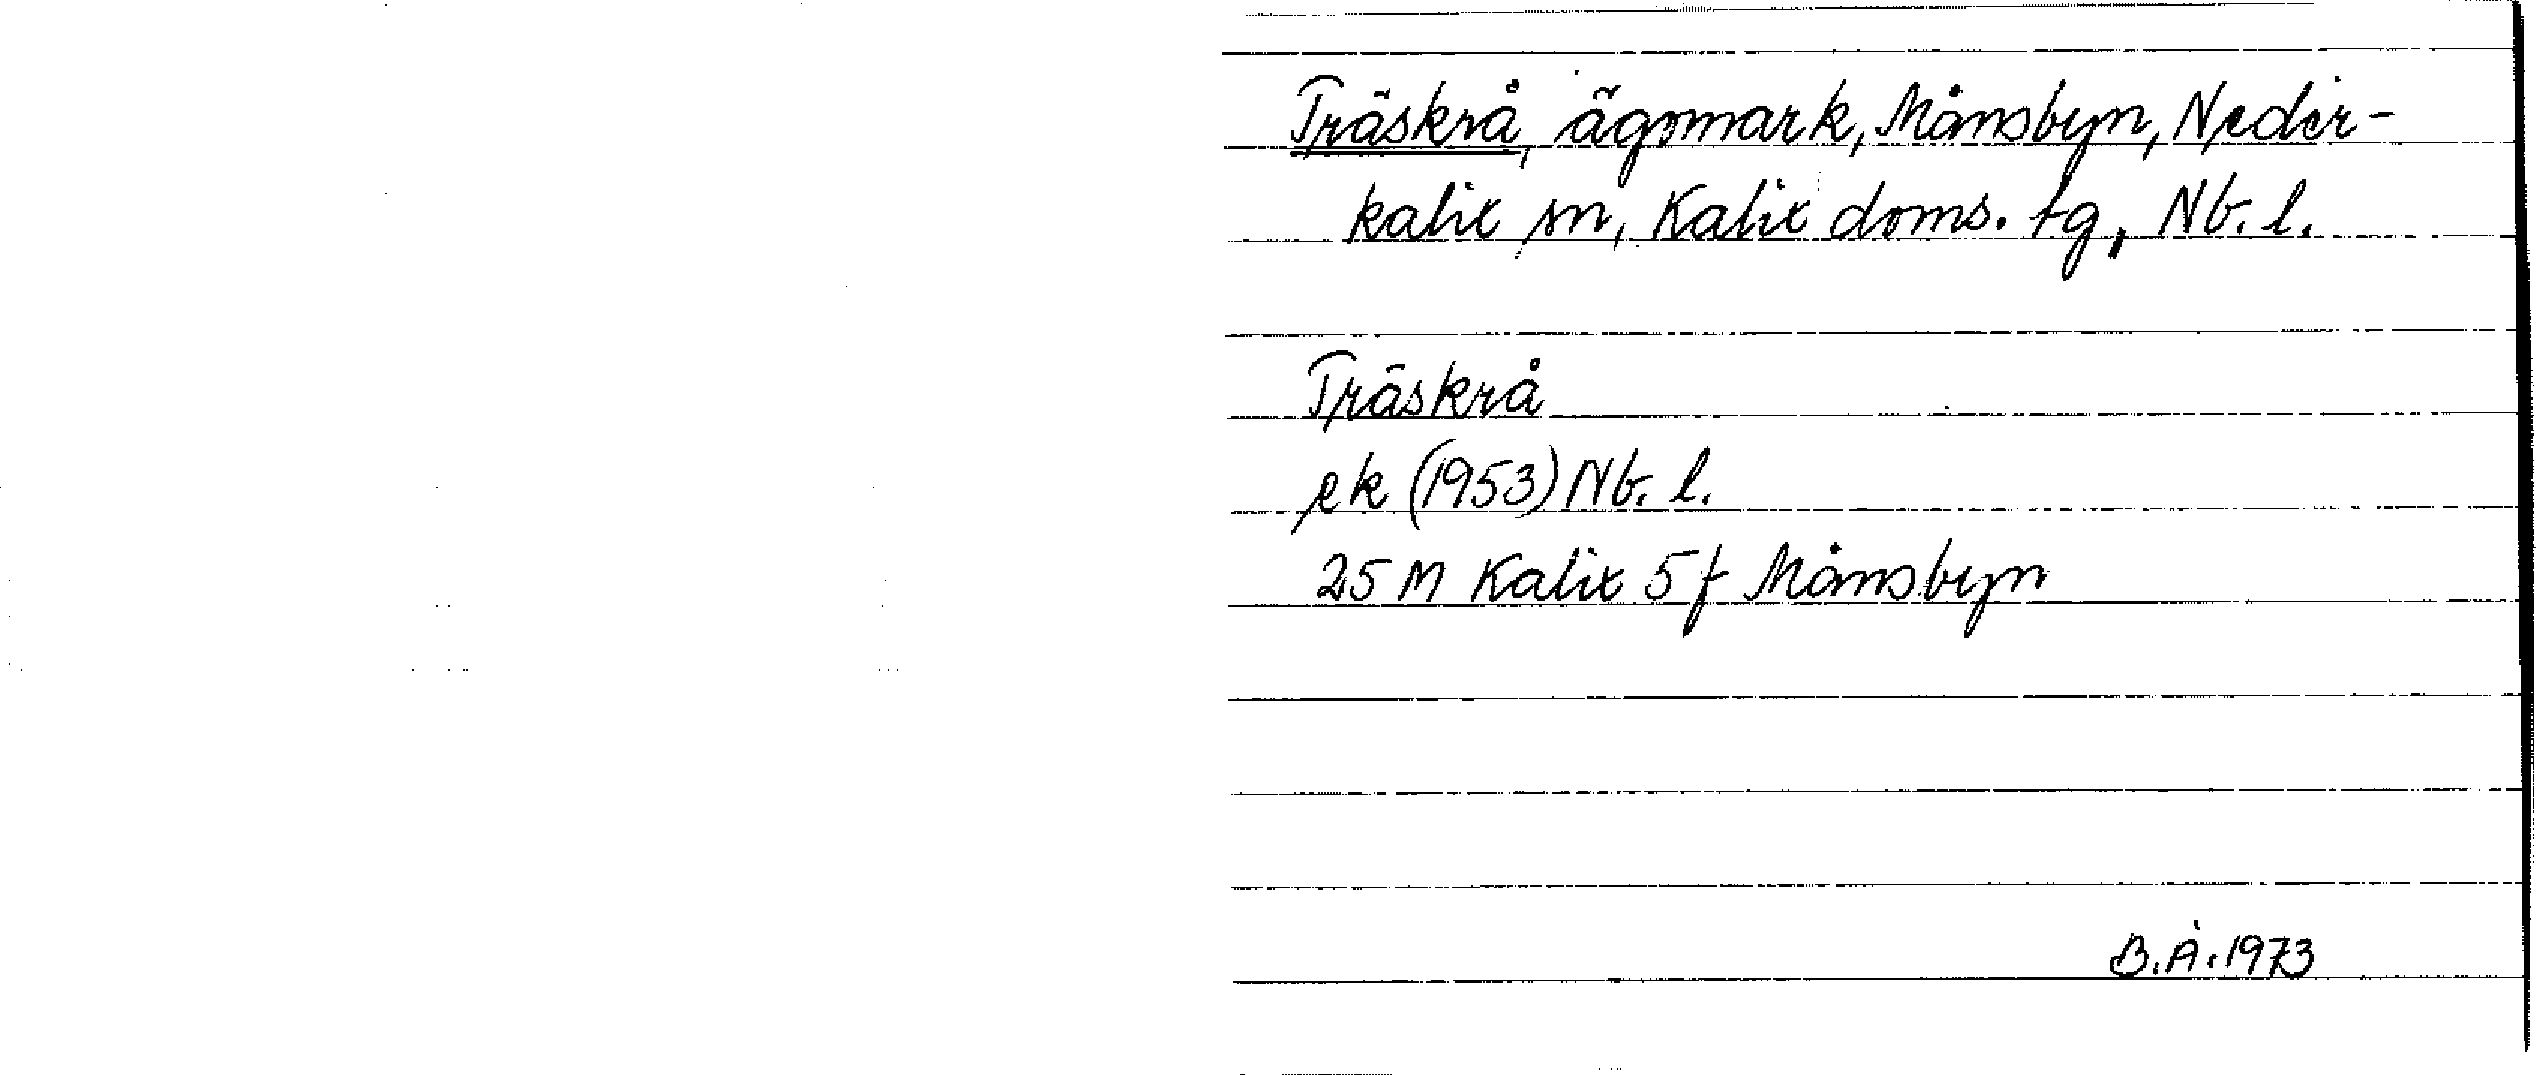 Träskrå, ägomark, Månsbyn, Neder-
kalix sn, Kalix doms. tg, Nb. l.
Träskrå
ek (1953) Nb. l.
25 M Kalix 5 f Månsbyn
B.Å. 1973